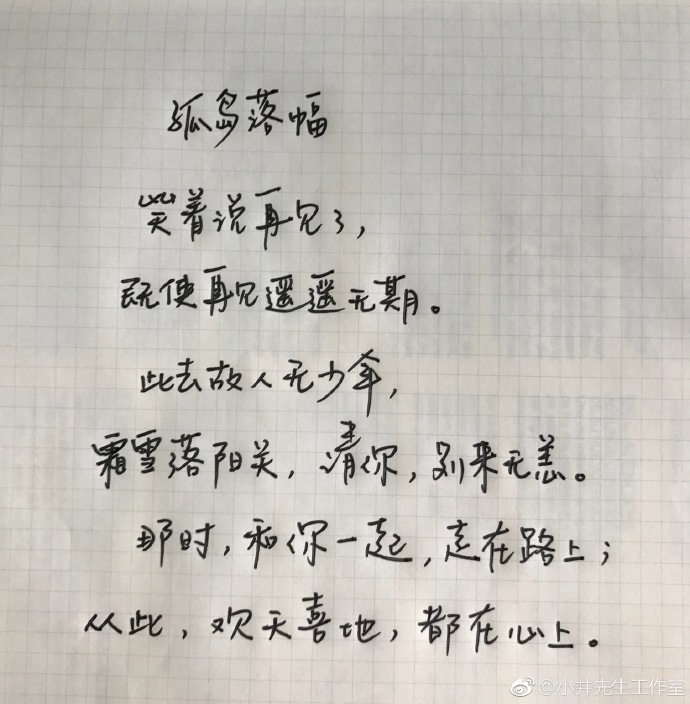 孤岛落幅
笑着说再见了，
既使再见遥遥无期。
此去故人无少年，
霜雪落阳关，请你，别来无恙。
那时，和你一起，走在路上；
从此，欢天喜地，都在心上。
@小井先生工作室